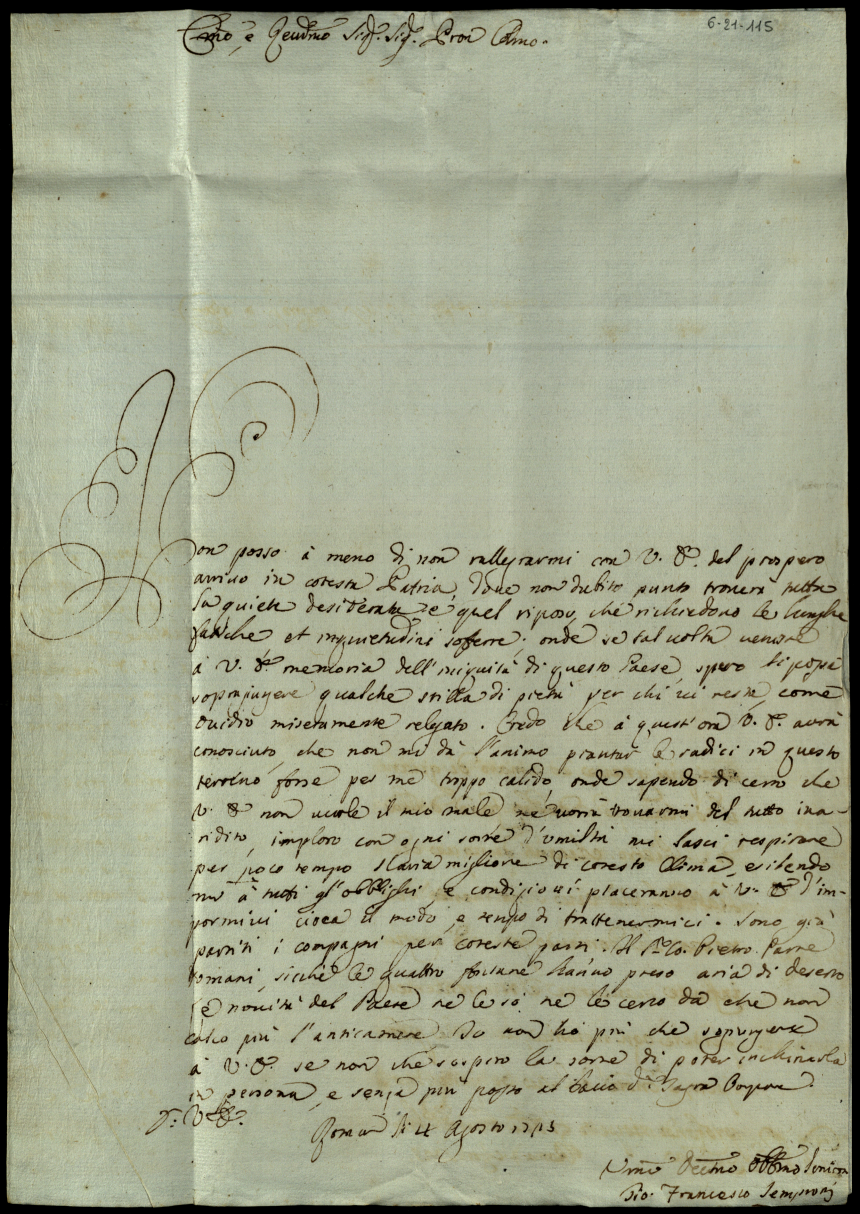 6-21-115
Emo, e Reudmo Sig. Sig. Pron Colmo.
Non posso à meno di non rallegrarmi con V. E. del prospero
arriuo in cotesta Patria, doue non dubito punto trouerà tutta
la quiete desiderata e quel riposo, che richiedono le lunghe
fatiche et inquietudini sofferte; onde se tal uolta uenisse
à V. E. memoria dell'iniquità di questo Paese, spero li possa
sopragiugere qualche stilla di pietà per chi ui resta, come
Ouidio miseramente relegato. Credo che à quest'ora V. E. aurà
conosciuto, che non mi dà l'animo piantar le radici in questo
terreno forse per me troppo calido, onde sapendo di certo che
V. E. non uuole il mio male ne uorrà trouarmi del tutto ina-
ridito, imploro con ogni sorte d'umiltà mi lasci respirare
per poco tempo l'aria migliore di cotesto Clima, esibendo
mi à tutti gl'obblighi, e condizioni piaceranno à V. E. d'im-
pormiui circa il modo, e tempo di trattenermici. Sono già
partiti i compagni per coteste parti. Il Co. Pietro Parte
domani, sicche le quattro fontane hanno preso aria di deserto
le nouità del Paese ne le sò ne le cerco da che non
calco più l'anticamere. Io non hò più che sogiugere
à V. E. se non che sospiro la sorte di poter inchinarla
in persona, e senza più passo al bacio di Sagra Porpora.
D. V. E.
Roma li 4 Agosto 1713
Umo Deumo Obbmo Seruitor
Gio. Francesco Sempronij